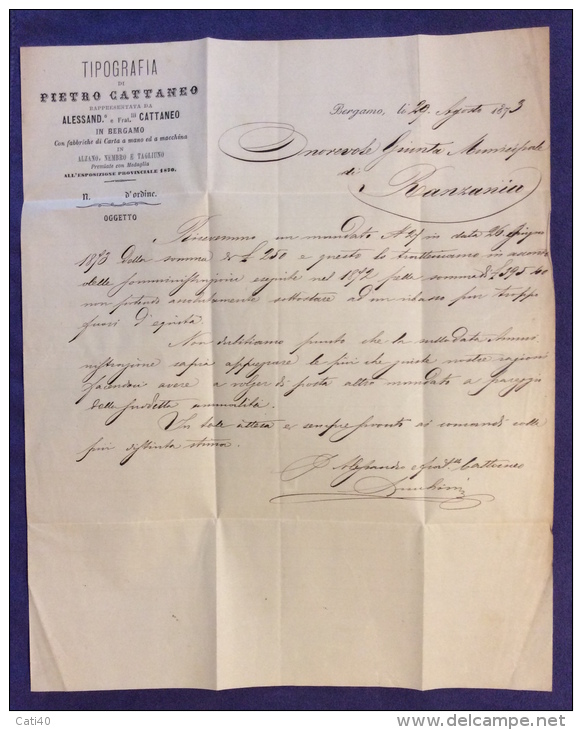 TIPOGRAFIA
DI
PIETRO CATTANEO
RAPPRESENTATA DA
ALESSAND.º e Frat.lli CATTANEO
IN BERGAMO
Con fabbriche di Carta a mano ed a macchina
IN
ALZANO, NEMBRO E TAGLIUNO
Premiato con Medaglia
ALL'ESPOSIZIONE PROVINCIALE 1870.
N. d'ordine.
OGGETTO
Bergamo, li 29 Agosto 1873
Onorevole Giunta Municipale
di
Ranzanico
Ricevemmo un mandato Nº 27 in data 26 Giugno
1873 della somma di £ 250 e questo lo tratteniamo in acconto
delle somministrazioni eseguite nel 1872 per la somma di £ 395.40
non potendo assolutamente sottostare ad un ribasso pur troppo
fuori d'equità.
Non dubitiamo punto che la sullodata Ammi
nistrazione saprà appoggiare le più che giuste nostre ragioni
facendoci avere a volger di posta altro mandato a pareggio
della suddetta annualità.
In tale attesa e sempre pronto ai comandi colla
più distinta stima.
P. Alessandro e frat.lli Cattaneo
Cati40